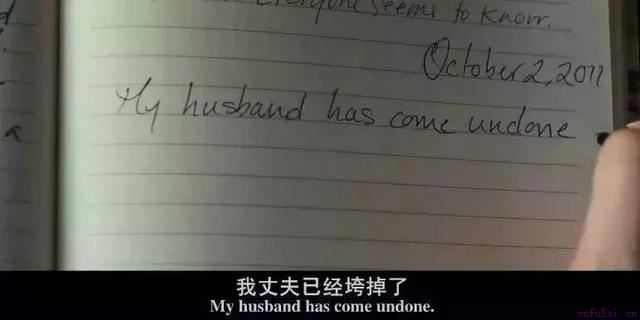 Everyone seems to Know.
October 2, 2011
My husband has come undone
我丈夫已经垮掉了
My husband has come undone.
cnfulai.cn